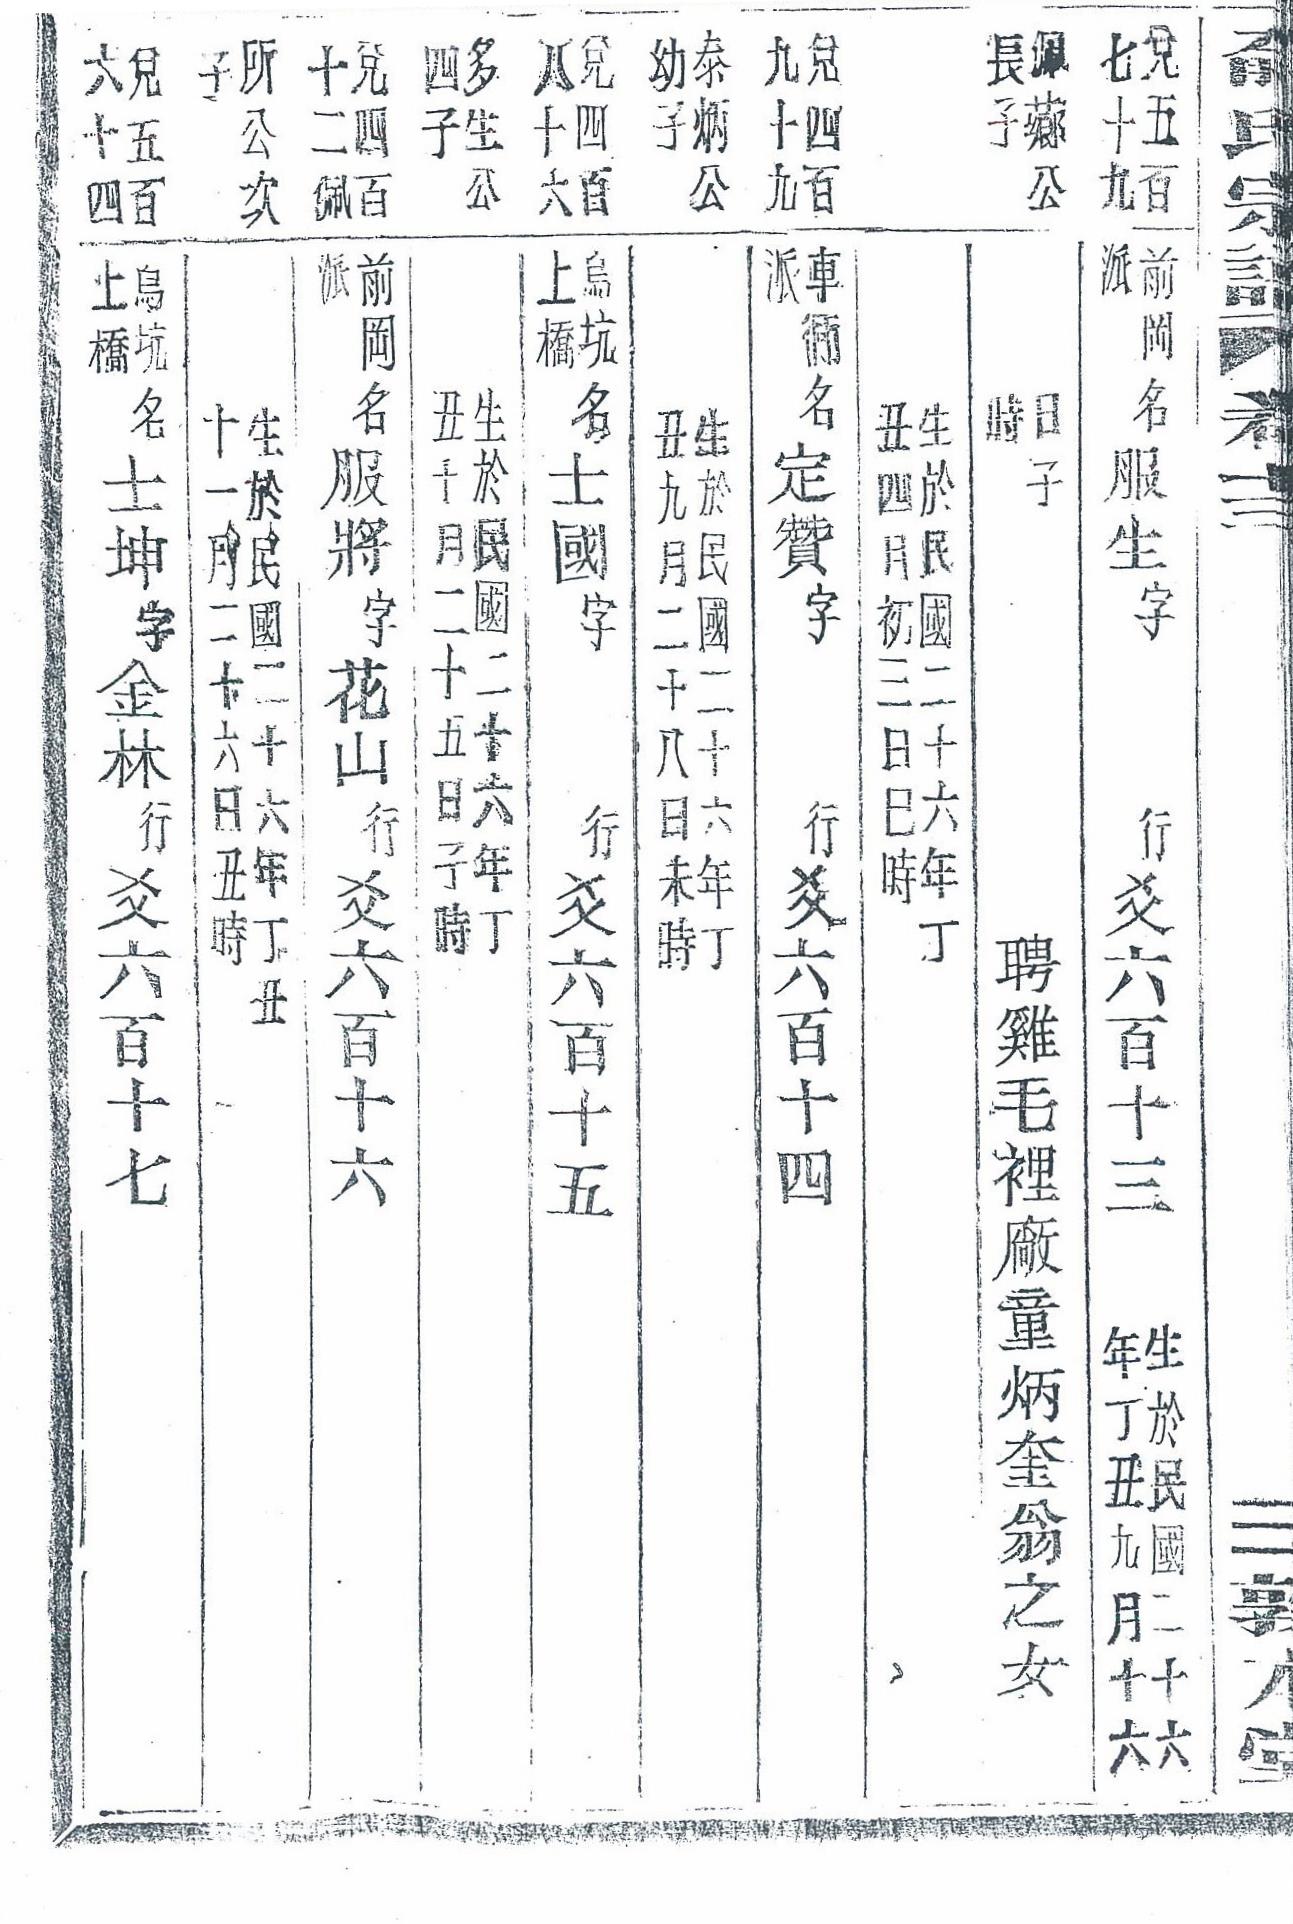 氏宗譜 卷
敦本堂
兌五百
七十九
前岡
派
名服生字 行爻六百十三
生於民國二十六
年丁丑九月十六
佩薌公
長子
日子
時
聘雞毛裡廠童炳奎翁之女
生於民國二十六年丁
丑四月初三日巳時
兌四百
九十九
車衕
派
名定贊字 行爻六百十四
泰炳公
幼子
生於民國二十六年丁
丑九月二十八日未時
兌四百
八十六
烏坑
上橋
名士國字 行爻六百十五
多生公
四子
生於民國二十六年丁
丑十月二十五日子時
兌四百
十二佩
前岡
派
名服將字花山行爻六百十六
所公次
子
生於民國二十六年丁丑
十一月二十六日丑時
兌五百
六十四
烏坑
上橋
名士坤字金林行爻六百十七